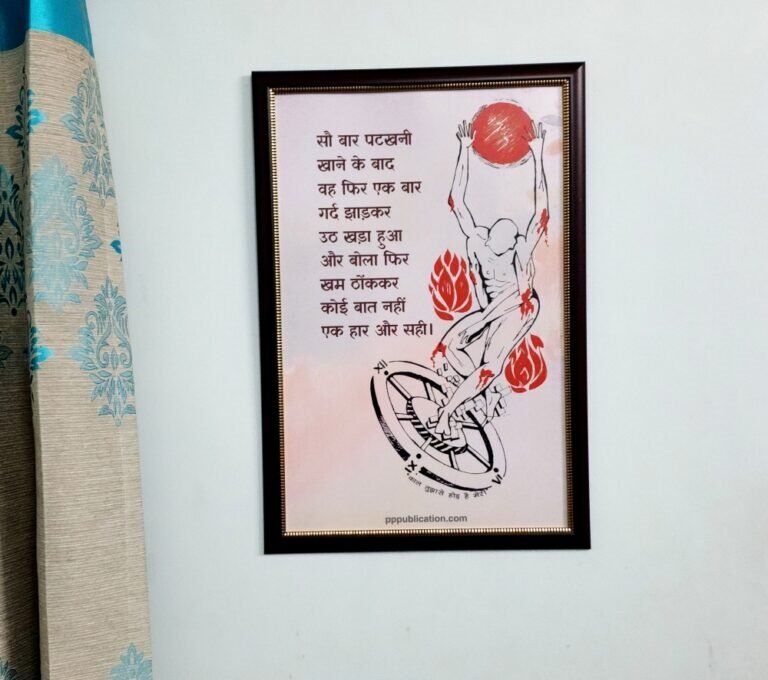 सौ बार पटखनी
खाने के बाद
वह फिर एक बार
गर्द झाड़कर
उठ खड़ा हुआ
और बोला फिर
खम ठोंककर
कोई बात नहीं
एक हार और सही।
XII
VI
काल तुझसे होड़ है मेरी
pppublication.com